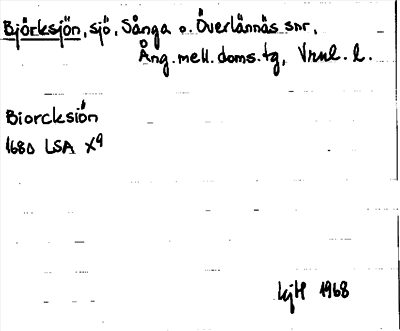 Björcksjön, sjö, Sånga o. Överlännäs snr,
Ång. mell. doms. tg, Vnrl. l.
Biorcksiön
1680 LSA X9
kjH 1968